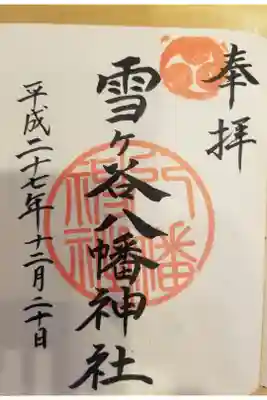 奉拝
雪ヶ谷八幡神社
平成二十七年十二月二十日